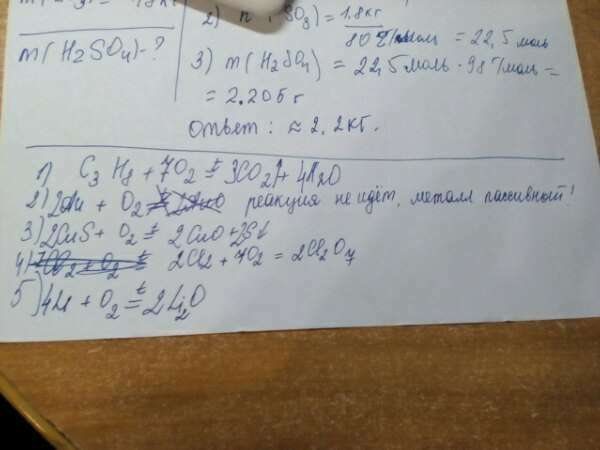 2) n (SO3) = 1.8кг
80 г/моль = 22,5 моль
m(H2SO4)-?
3) m(H2SO4) = 22,5моль · 98 г/моль =
= 2.205 г
Ответ: ≈ 2,2кг.
1) C3H8 + 7O2 t= 3CO2↑ + 4H2O
2) 2Au + O2 реакция не идёт, металл пассивный!
3) 2CuS + O2 t= 2CuO + 2S↓
4) 2Cl2 + 7O2 = 2Cl2O7
5) 4Li + O2 t= 2Li2O